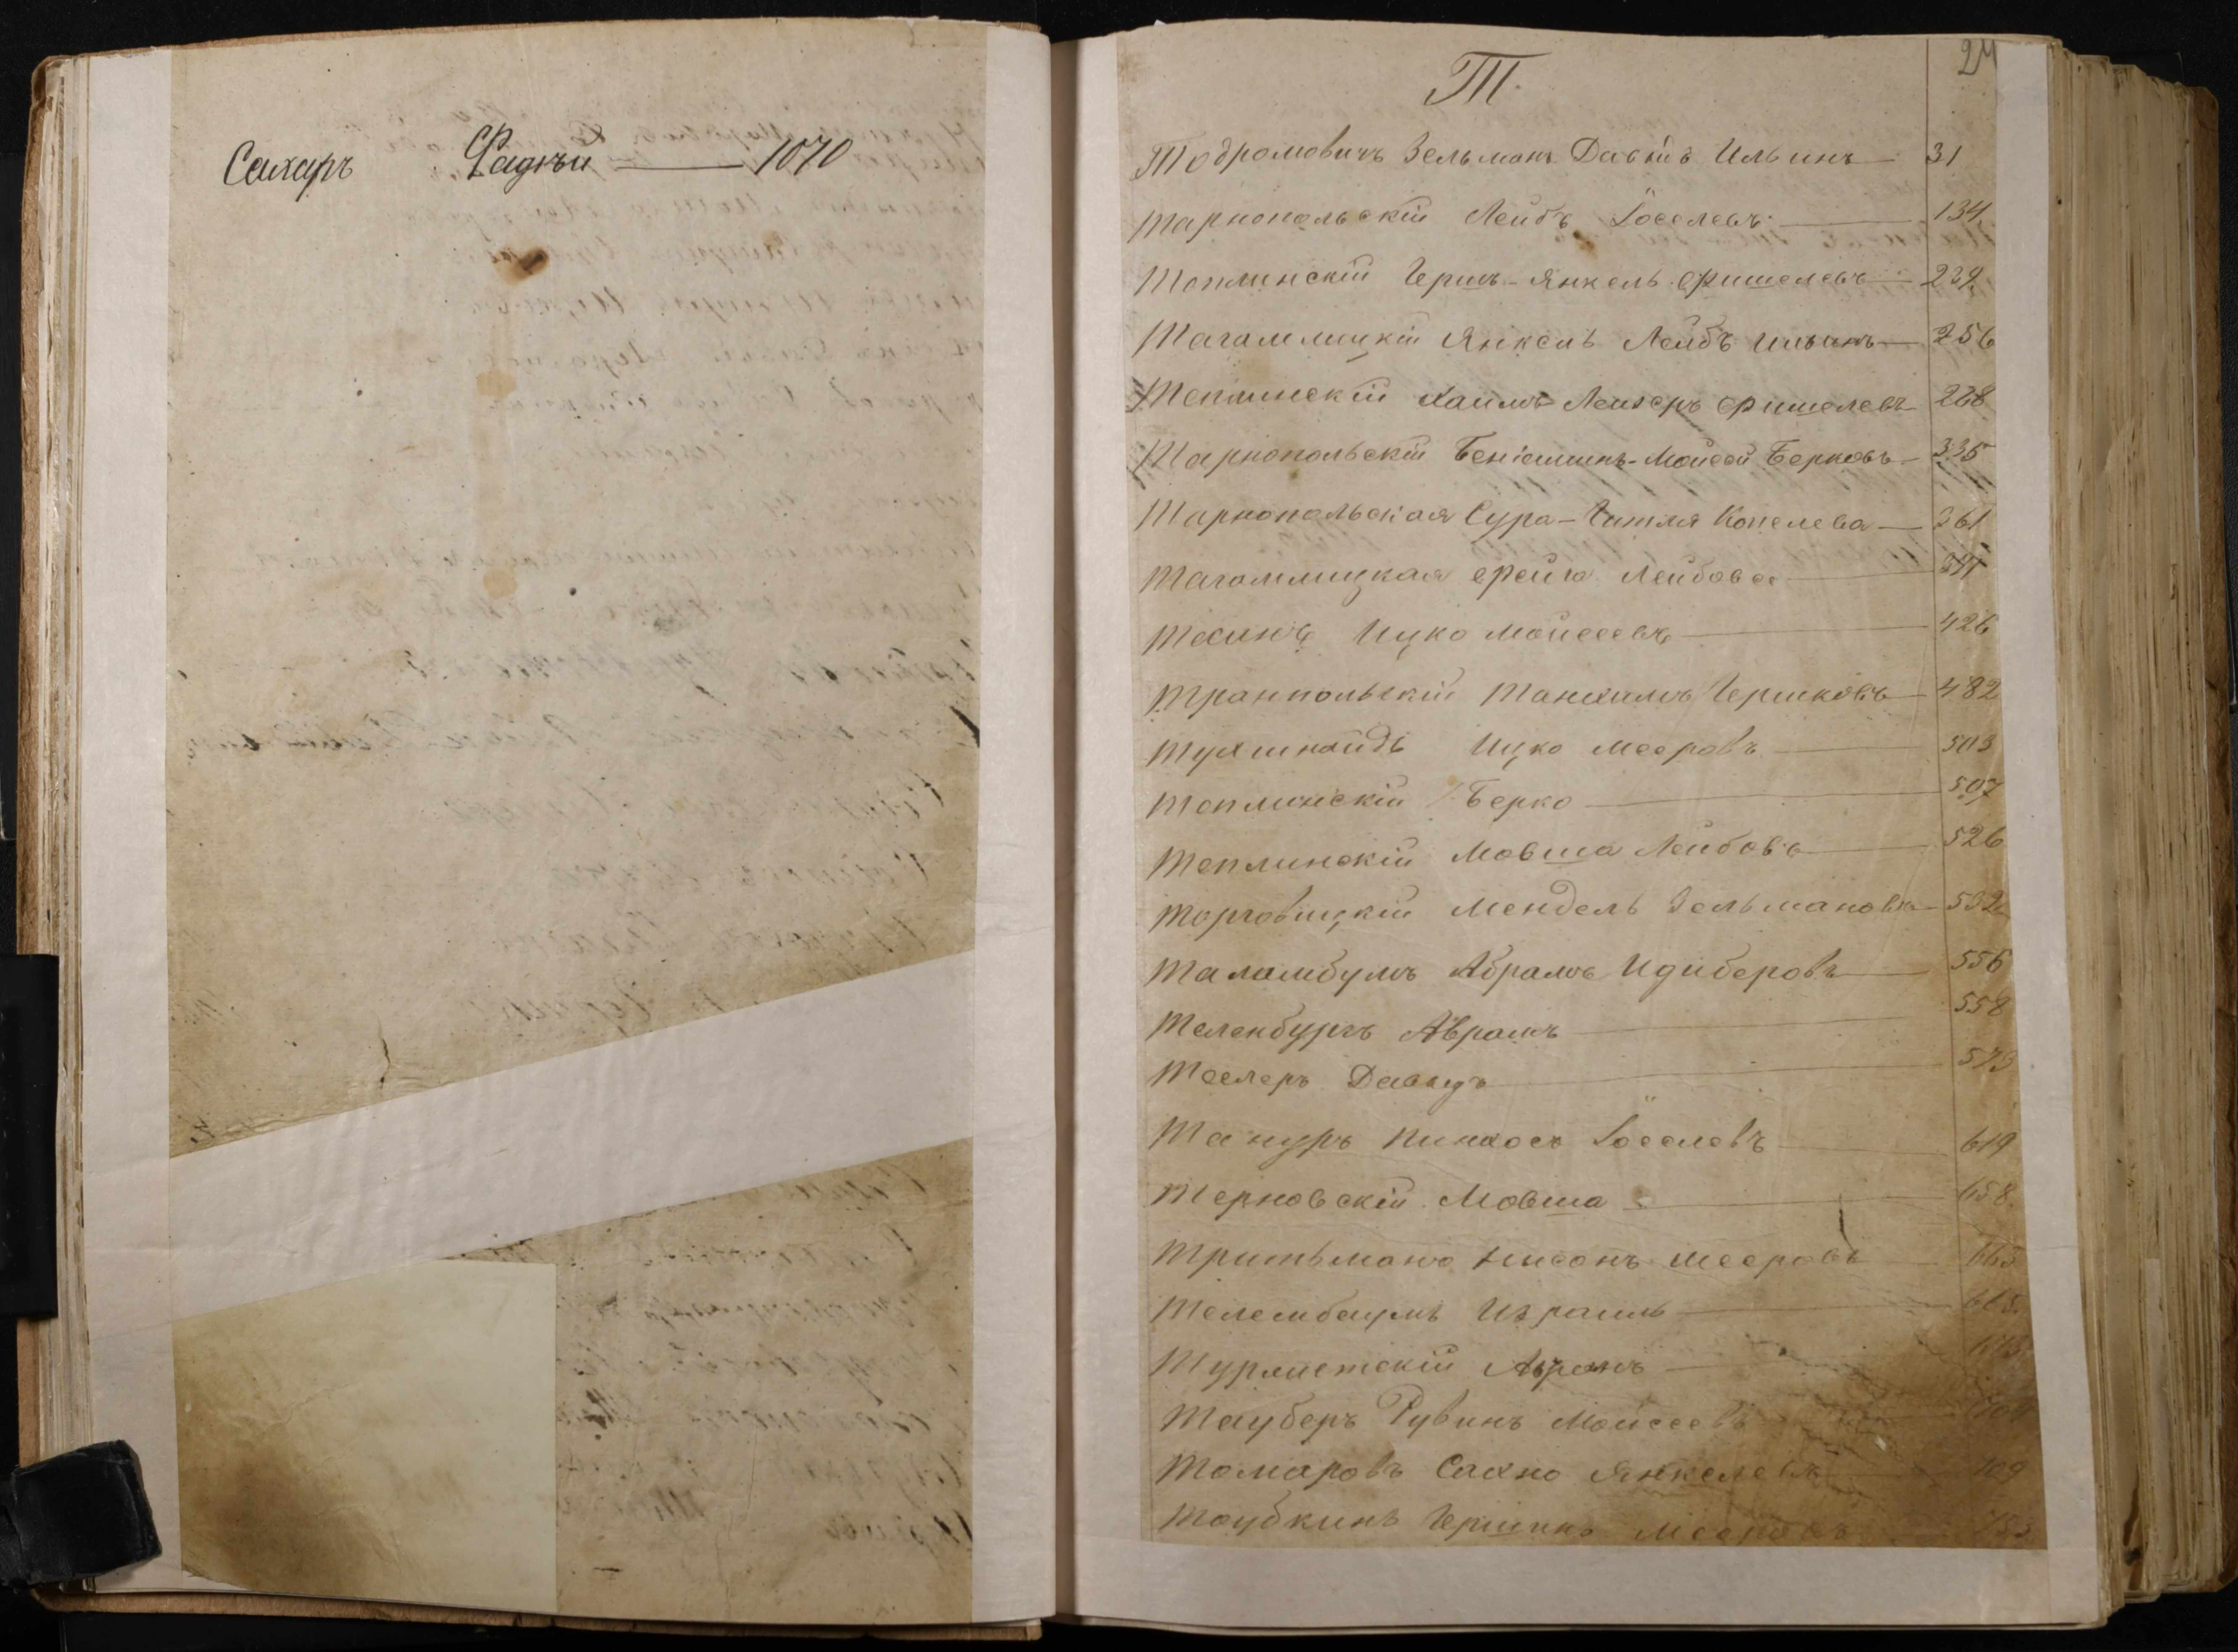 Сахаръ — 1070
24
Т.
Тодромовичъ Зельманъ Давидъ Ильинъ — 31
Тарнопольскій Лейбъ Іоселевъ — 134
Теплинскій Гершъ-Янкель Фишелевъ — 239
Тагамлицкій Янкель Лейбъ Ильинъ — 256
Теплинскій Хаимъ-Лейзеръ Фишелевъ — 268
Тарнопольскій Беніаминъ-Мойсей Берковъ — 335
Тарнопольская Сура-Гитля Копелева — 361
Тагамлицкая Фейга Лейбова
Техинъ Ицко Мойсеевъ — 426
Транпольскій Танхимъ Гершковъ — 482
Тухшнайдъ Ицко Мееровъ — 503
Теплинскій Берко — 507
Теплинскій Мовша Лейбовъ — 526
Торговицкій Мендель Зельмановъ — 532
Таламбумъ Абрамъ — 556
Теленбургъ Аврамъ — 558
Теслеръ Давидъ — 573
Тануръ Пинхосъ Іоселевъ — 619
Терновскій Мовша — 658
Тритьманъ Нисонъ Мееровъ — 663
Телембаумъ Израиль — 665
Аврамъ
Тауберъ Рувинъ Мойсеевъ
Томаровъ Сахно Янкелевъ — 709
Таубкинъ Гершинъ Мееровъ